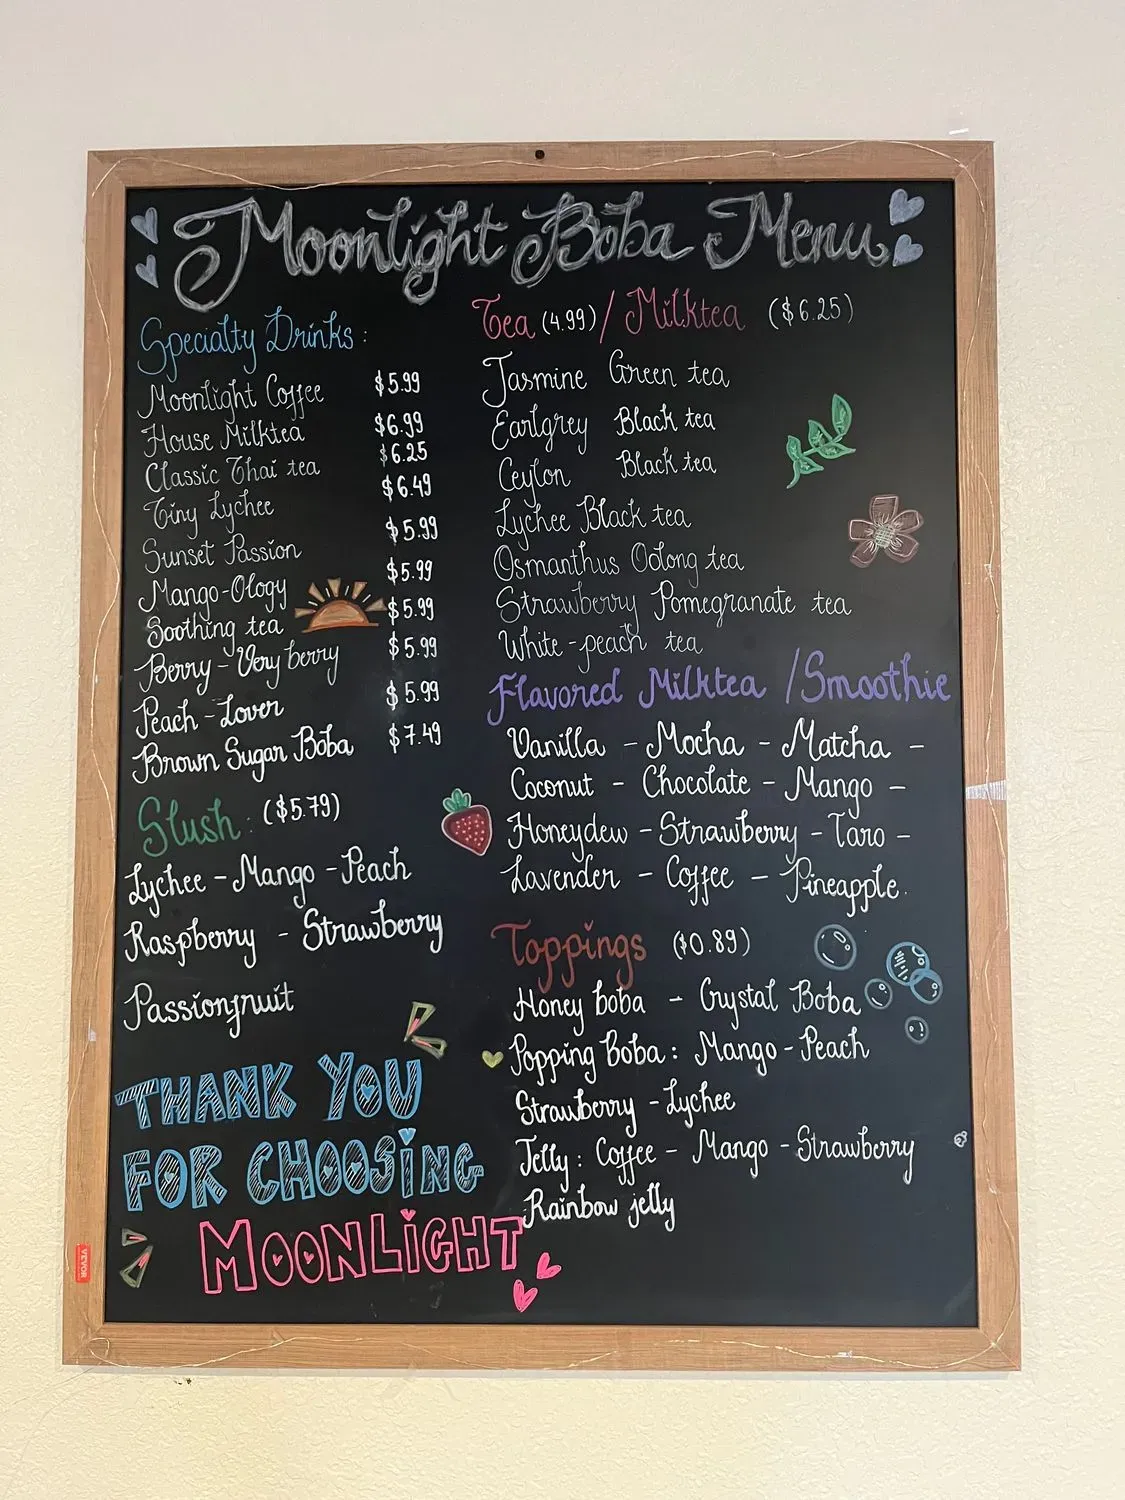 Moonlight Boba Menu
Specialty Drinks :
Moonlight Coffee $5.99
House Milktea $6.99
Classic Thai tea $6.25
Tiny Lychee $6.49
Sunset Passion $5.99
Mango-Ology $5.99
Soothing tea $5.99
Berry - Very berry $5.99
Peach - Lover $5.99
Brown Sugar Boba $7.49
Slush : ($5.79)
Lychee - Mango - Peach
Raspberry - Strawberry
Passionfruit
THANK YOU
FOR CHOOSING
MOONLIGHT
Tea (4.99) / Milktea ($6.25)
Jasmine Green tea
Earlgrey Black tea
Ceylon Black tea
Lychee Black tea
Osmanthus Oolong tea
Strawberry Pomegranate tea
White - peach tea
Flavored Milktea / Smoothie
Vanilla - Mocha - Matcha -
Coconut - Chocolate - Mango -
Honeydew - Strawberry - Taro -
Lavender - Coffee - Pineapple.
Toppings ($0.89)
Honey boba - Crystal Boba
Popping Boba : Mango - Peach
Strawberry - Lychee
Jelly : Coffee - Mango - Strawberry
Rainbow jelly
VEVOR